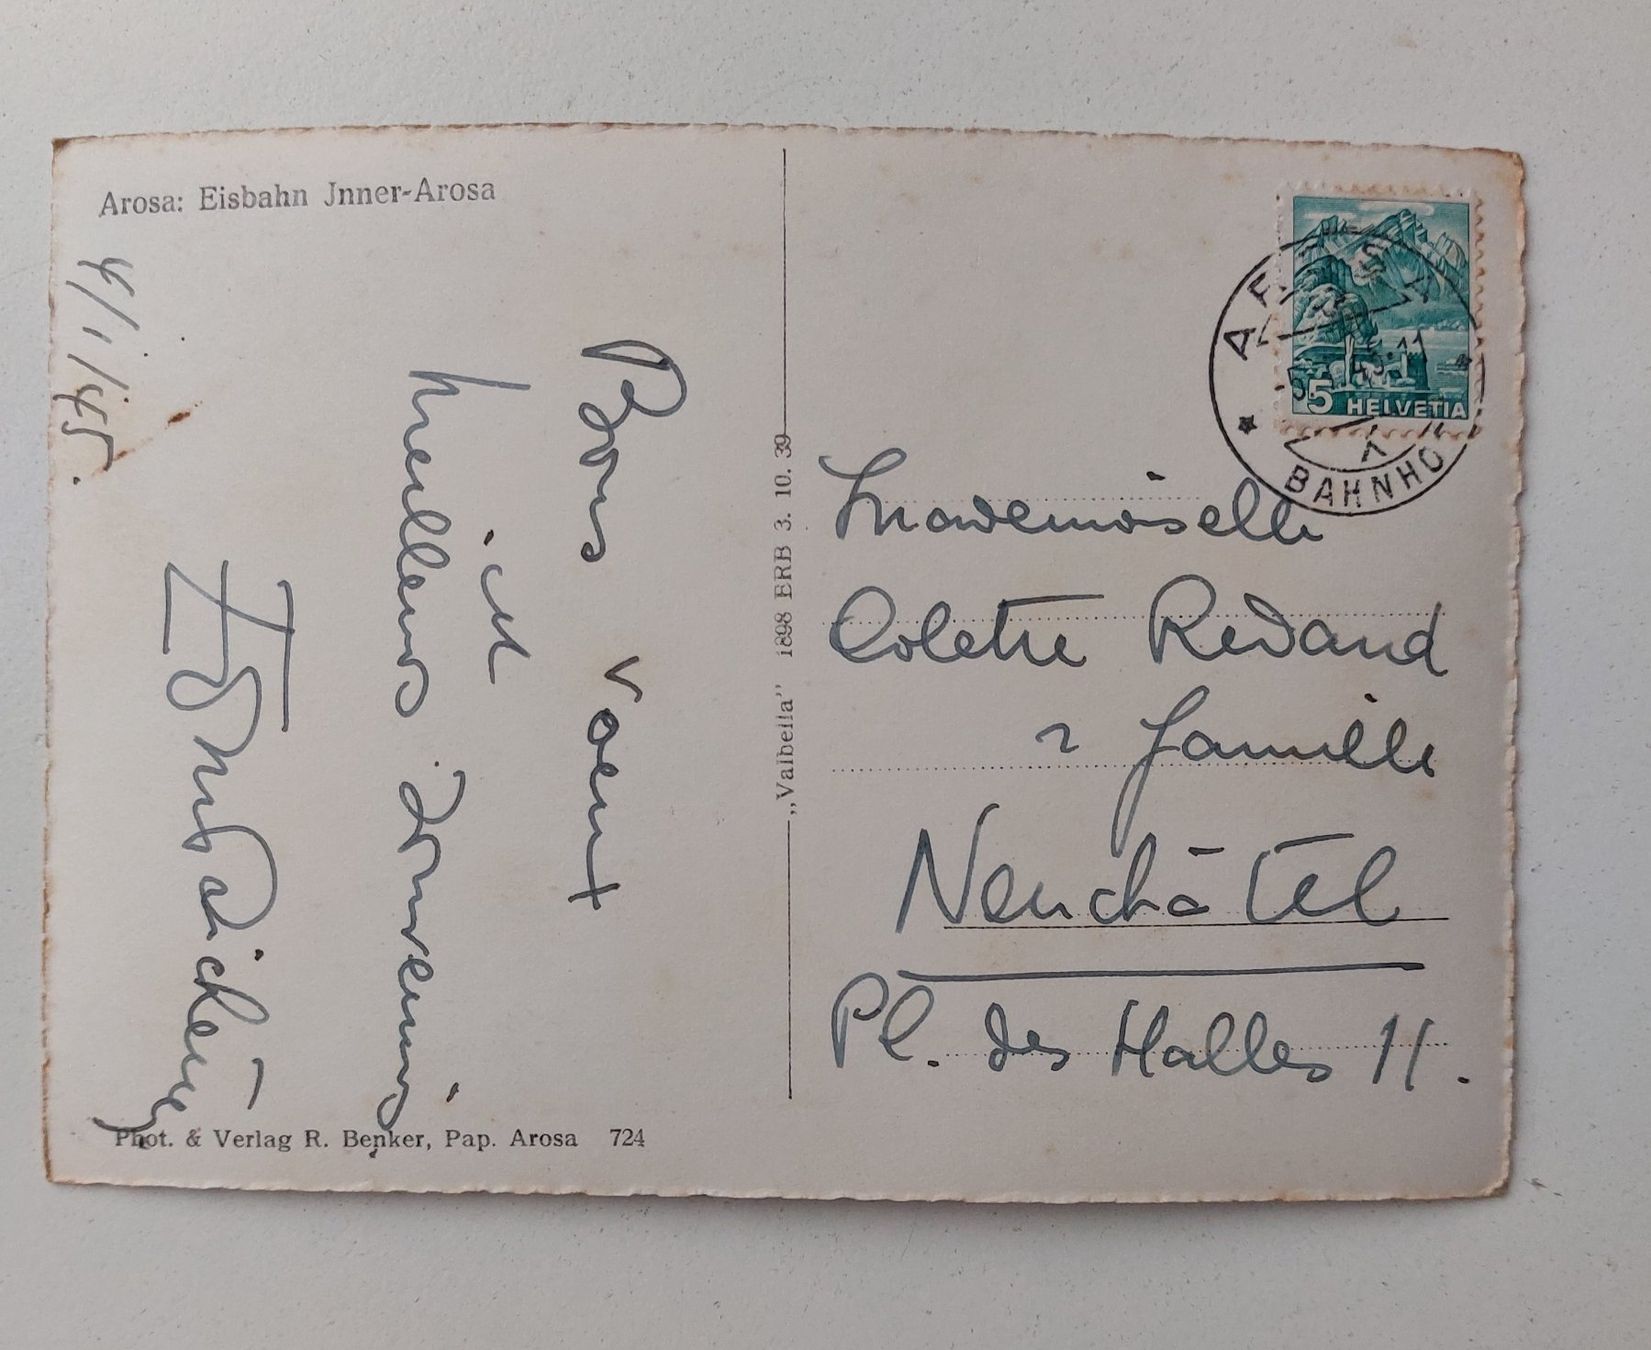 Arosa: Eisbahn Jnner-Arosa
4/1/45.
Bons voeux
et
meilleurs souvenirs
Phot. & Verlag R. Benker, Pap. Arosa 724
„Valbella" 1898 ERB 3. 10. 39
AROSA
45.-11
1
BAHNHO
5 HELVETIA
Mademoiselle
Colette
& famille
Neuchâtel
Pl. des Halles 11.